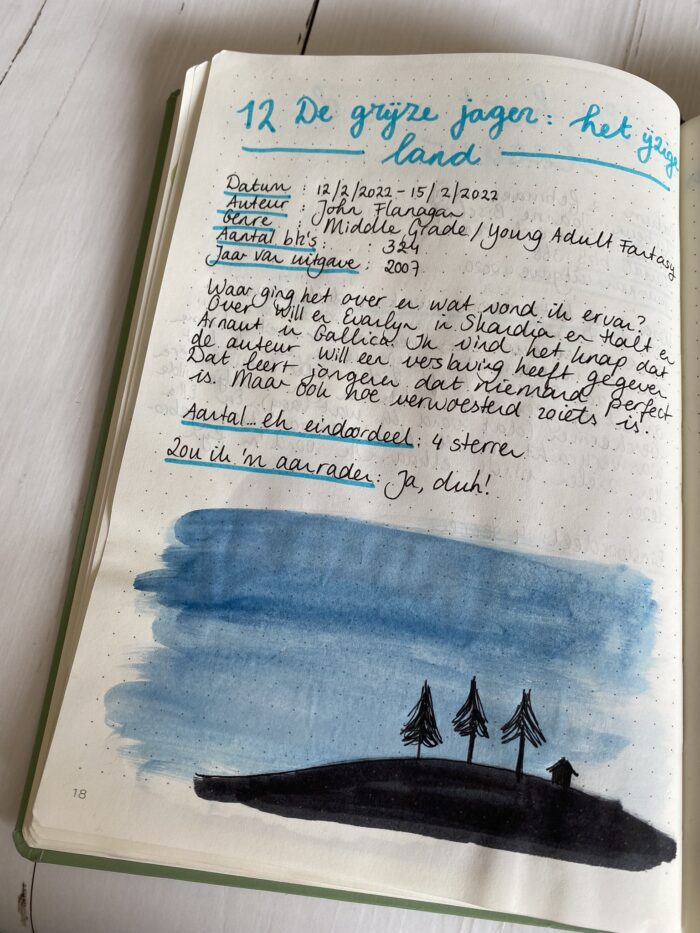 12 De grijze jager: het ijzige
land
Datum : 12/2/2022 - 15/2/2022
Auteur : John Flanagan
Genre : Middle Grade / Young Adult Fantasy
Aantal blz's : 324
Jaar van uitgave : 2007
Waar ging het over en wat vond ik ervan?
Over Will en Evanlyn in Skandia en Halt en
Arnaut in Gallica. Ik vind het knap dat
de auteur Will een verslaving heeft gegeven
Dat leert jongeren dat niemand perfect
is. Maar ook hoe verwoestend zoiets is.
Aantal... eh eindoordeel: 4 sterren
Zou ik 'm aanraden: Ja, duh!
18